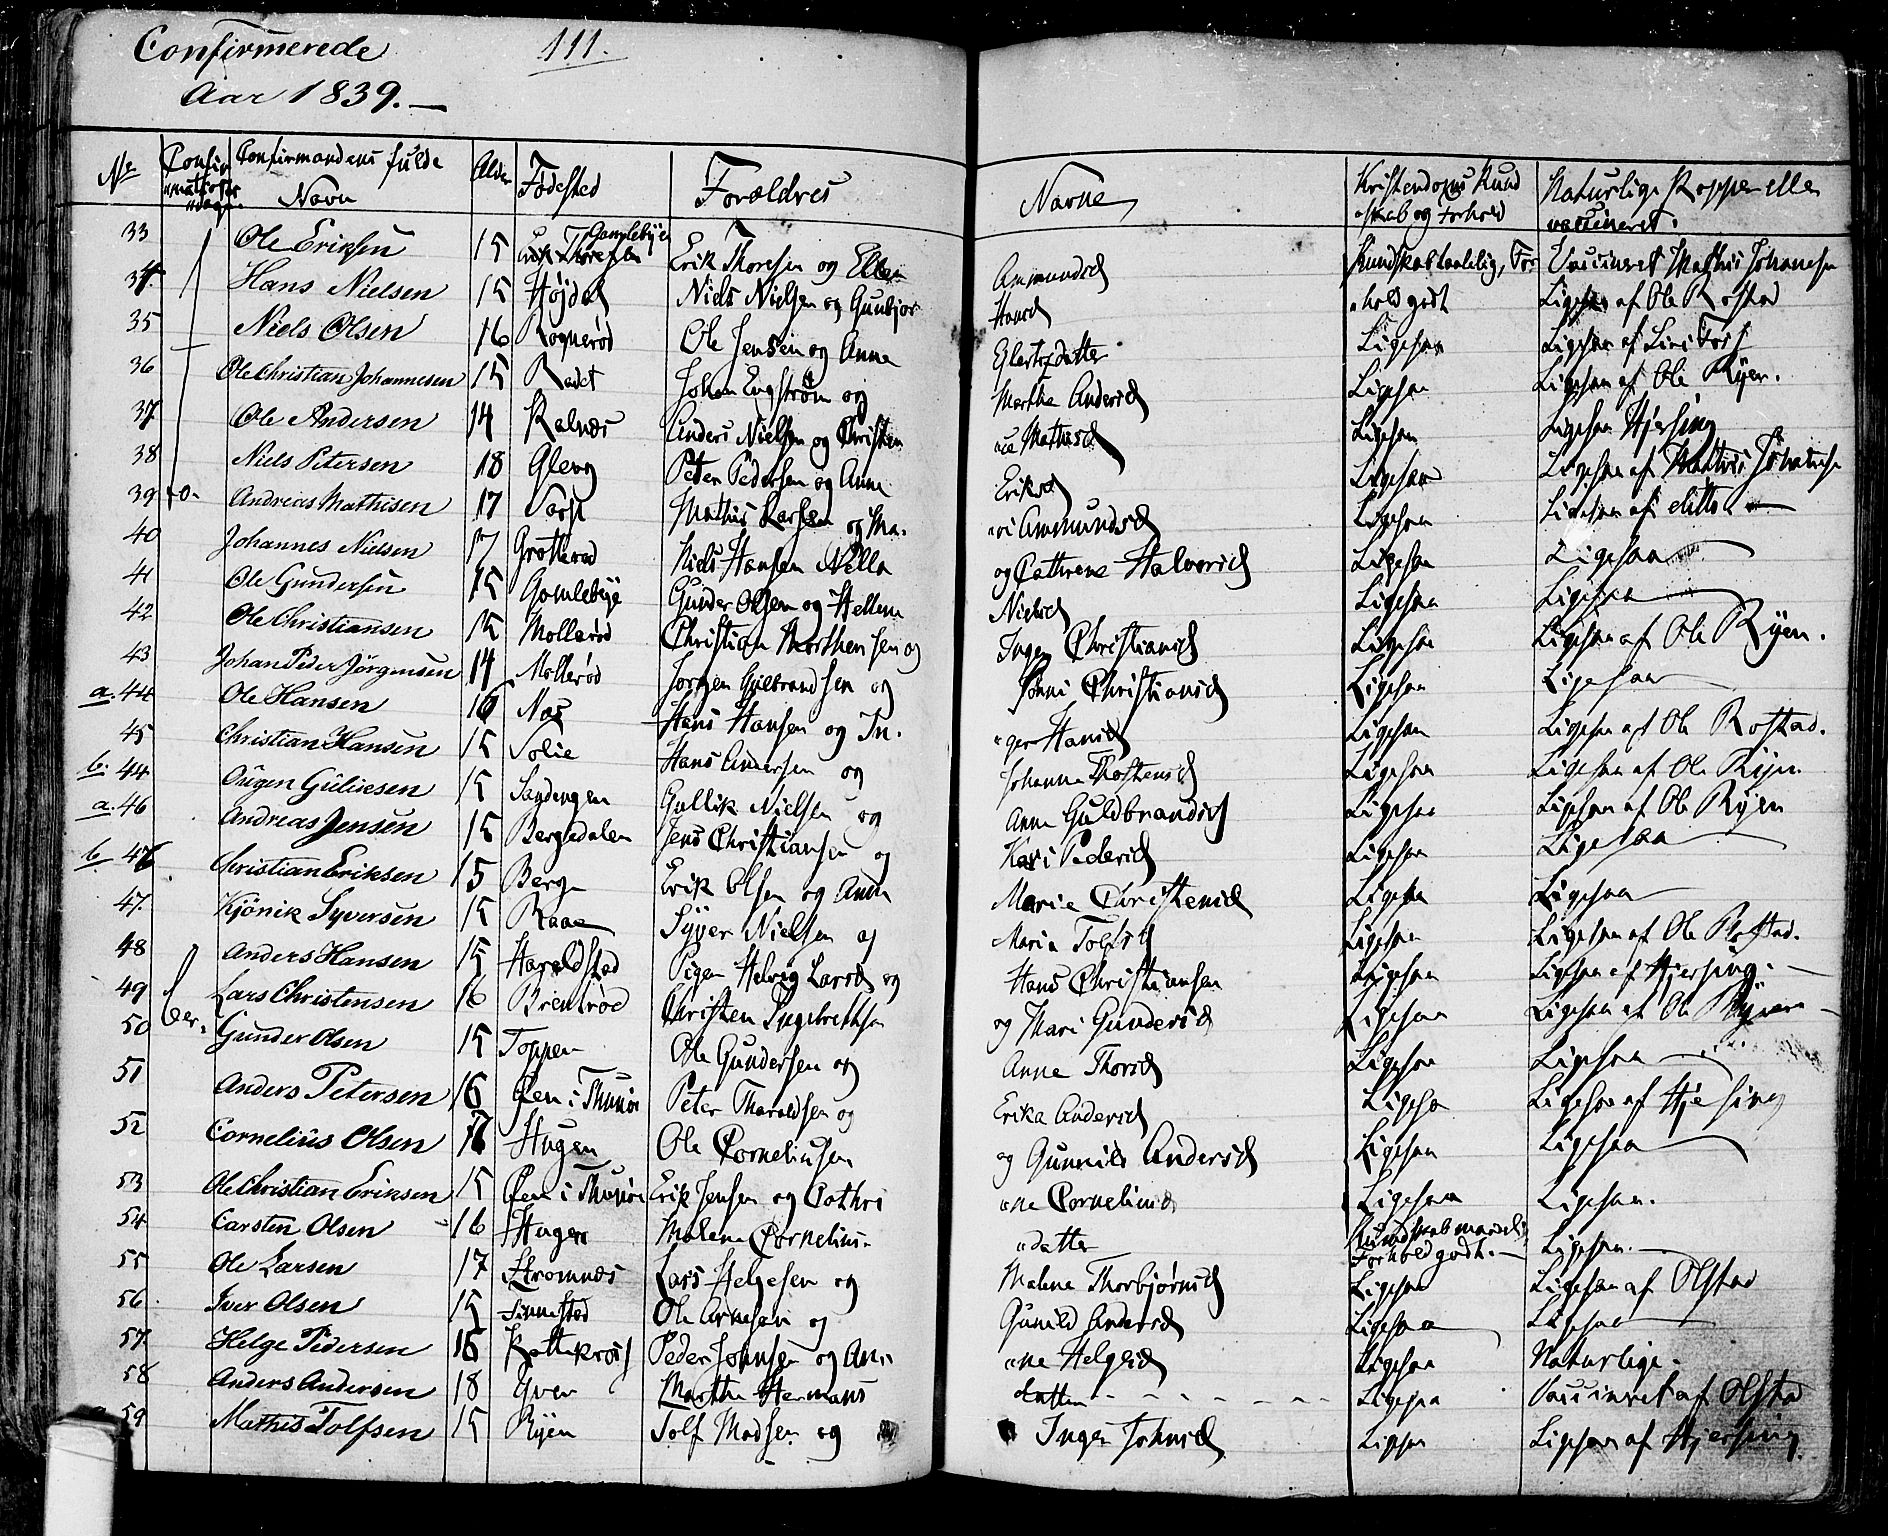 Confirmerede 111.
Aar 1839.
No Confir„mations„dage. Confirmandens fulde Navn Alder Fødested Forældres Navne Kristendoms Kund„skab og Forhold Naturlige Kopper eller vaccineret.
33 Ole Eriksen 15 Gamlebyen Erik Thoresen og Ellen Ammundsd Kundskab taalelig, For Vaccineret Mathis Johannesen
34. Hans Nielsen 15 Højdal Niels Nielsen og Gunbjor Hansd „hold godt Ligesaa af Ole Rostad
35 Niels Olsen 16 Rognerød Ole Jensen og Anne Eglertsdatter Ligesaa Ligesaa af
36 Ole Christian Johannesen 15 Rødet Johan Engström og Marthe Andersd Ligesaa Ligesaa af Ole Ryen.
37 Ole Andersen 14 Kalnæs Anders Nielsen og Christen „ce Mathisd Ligesaa Ligesaa Hjersing
38 Niels Petersen 18 Gleng Peter Pedersen og Anne Eriksd Ligesaa Ligesaa af Mathis Johannesen
39 Andreas Mathisen 17 Mathis Larsen og Ma. „ri Ammundsd Ligesaa Ligesaa af ditto
40 Johannes Nielsen 17 Grotterød Niels Hansen Nella og Cathrene Halvorsd Ligesaa Ligesaa
41 Ole Gundersen 15 Gamlebye Gunder Olsen og Hellene Nielsd Ligesaa Ligesaa
42 Ole Christiansen 15 Mollerød Christian Morthensen og Inger Christiansd Ligesaa Ligesaa af Ole Ryen.
43 Johan Peder Jørgensen 14 Mollerød Jørgen Gulbrandsen og Christiansd Ligesaa Ligesaa
a. 44 Ole Hansen 16 Næs Hans Hansen og In. „ger Hansd Ligesaa Ligesaa af Ole Rostad.
45 Christian Hansen 15 Solie Hans Andersen og Johanne Thostensd Ligesaa Ligesaa af Ole Ryen.
b. 44 Gulicksen 15 Sandengen Gullik Nielsen og Anne Guldbrandsd Ligesaa Ligesaa af Ole Ryen
a. 46 Andreas Jensen 15 Bergsdalen Jens Christiansen og Kari Pedersd Ligesaa Ligesaa
b. 46 Christian Eriksen 15 Berg Erik Olsen og Anne Marie Christensd Ligesaa Ligesaa
47. Kjönik Syversen 15 Raae Syver Nielsen og Maria Tolfsd Ligesaa Ligesaa af Ole Rostad.
48 Anders Hansen 15 Haraldstad Pigen Helvig Larsd og Hans Christiansen Ligesaa Ligesaa af Hjersing.
49 Lars Christensen 16 Brentrød Christen Ingebrethsen og Mari Gundersd Ligesaa Ligesaa af Ole Ryen
50 Gunder Olsen 15 Toppen Ole Gundersen og Anne Thorsd Ligesaa Ligesaa
51 Anders Petersen 16 Øen i Thunøe Peter Tharaldsen og Erika Andersd Ligesaa Ligesaa af Hjersing
52 Cornelius Olsen 17 Hugen Ole Corneliusen og Gunnild Andersd Ligesaa Ligesaa
53 Ole Christian Eriksen 15 Øen i Thunøe Erik Jensen og Cathri „ne Corneliusd Ligesaa Ligesaa.
54 Carsten Olsen 16 Hagen Malene Cornelius- „datter Kundskab Forhold godt. Ligesaa.
55 Ole Larsen 17 Stromnæs Lars Helgesen og Malene Thorbjørnsd Ligesaa Ligesaa af Olstad
56 Iver Olsen 15 Tinnestad Ole Arnesen og Gunild Andersd Ligesaa Ligesaa
57. Helge Pedersen 15 Peder Johnsen og An- „ne Helgesd Ligesaa Naturlige.
58 Anders Andersen 18 Yven Marthe Hermans datter Ligesaa Vaccineret af Olstad
59 Mathis Tolfsen 15 Ryen Tolf Madsen og Inger Johnsd Ligesaa Ligesaa af Hjersing.